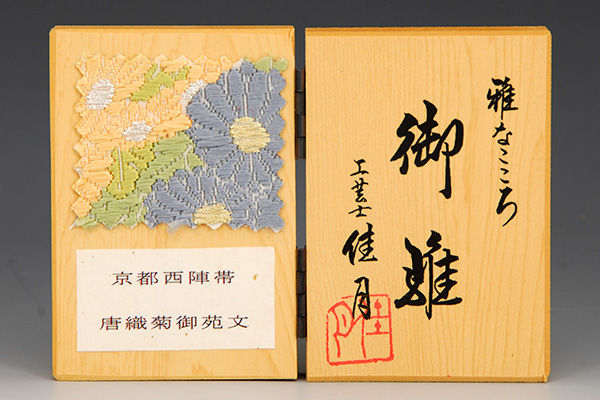 雅なこころ
御雛
工芸士 佳月
京都西陣帯
唐織菊御苑文